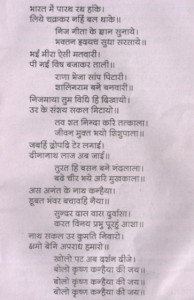 भारत में पारथ रथ हांके।
लिये चक्रकर नहिं बल थाके॥
निज गीता के ज्ञान सुनाये।
भक्तन हृदयय सुधा सरसाये॥
भई मीरा ऐसी मतवारी।
पी गई विष बजाकर ताली॥
राणा भेजा सांप पिटारी।
शालिगराम बने बनवारी॥
निजमाया तुम विधि हिं दिखायो।
उर के संशय सकल मिटायो॥
तव शत निन्दा करि तत्काला।
जीवन मुक्त भयो शिशुपाला॥
जबहिं द्रोपदि टेर लगाई।
दीनानाथ लाज अब जाई॥
तुरत हिं बसन बने नंदलाला।
बढे चीर भये अरि मुखकाला॥
अस अनंत के नाथ कन्हैया।
डूबत भंवर बचावहि नैया।
सुन्दर दास वास दुर्वासा।
करत विनय प्रभु पूरहु आशा॥
नाथ सकल उर कुमति निवारो।
क्षमो बेगि अपराध हमारो॥
खोलो पट अब दर्शन दीजे।
बोलो कृष्ण कन्हैया की जय॥
बोलो कृष्ण कन्हैया की जय॥
बोलो कृष्ण कन्हैया की जय॥